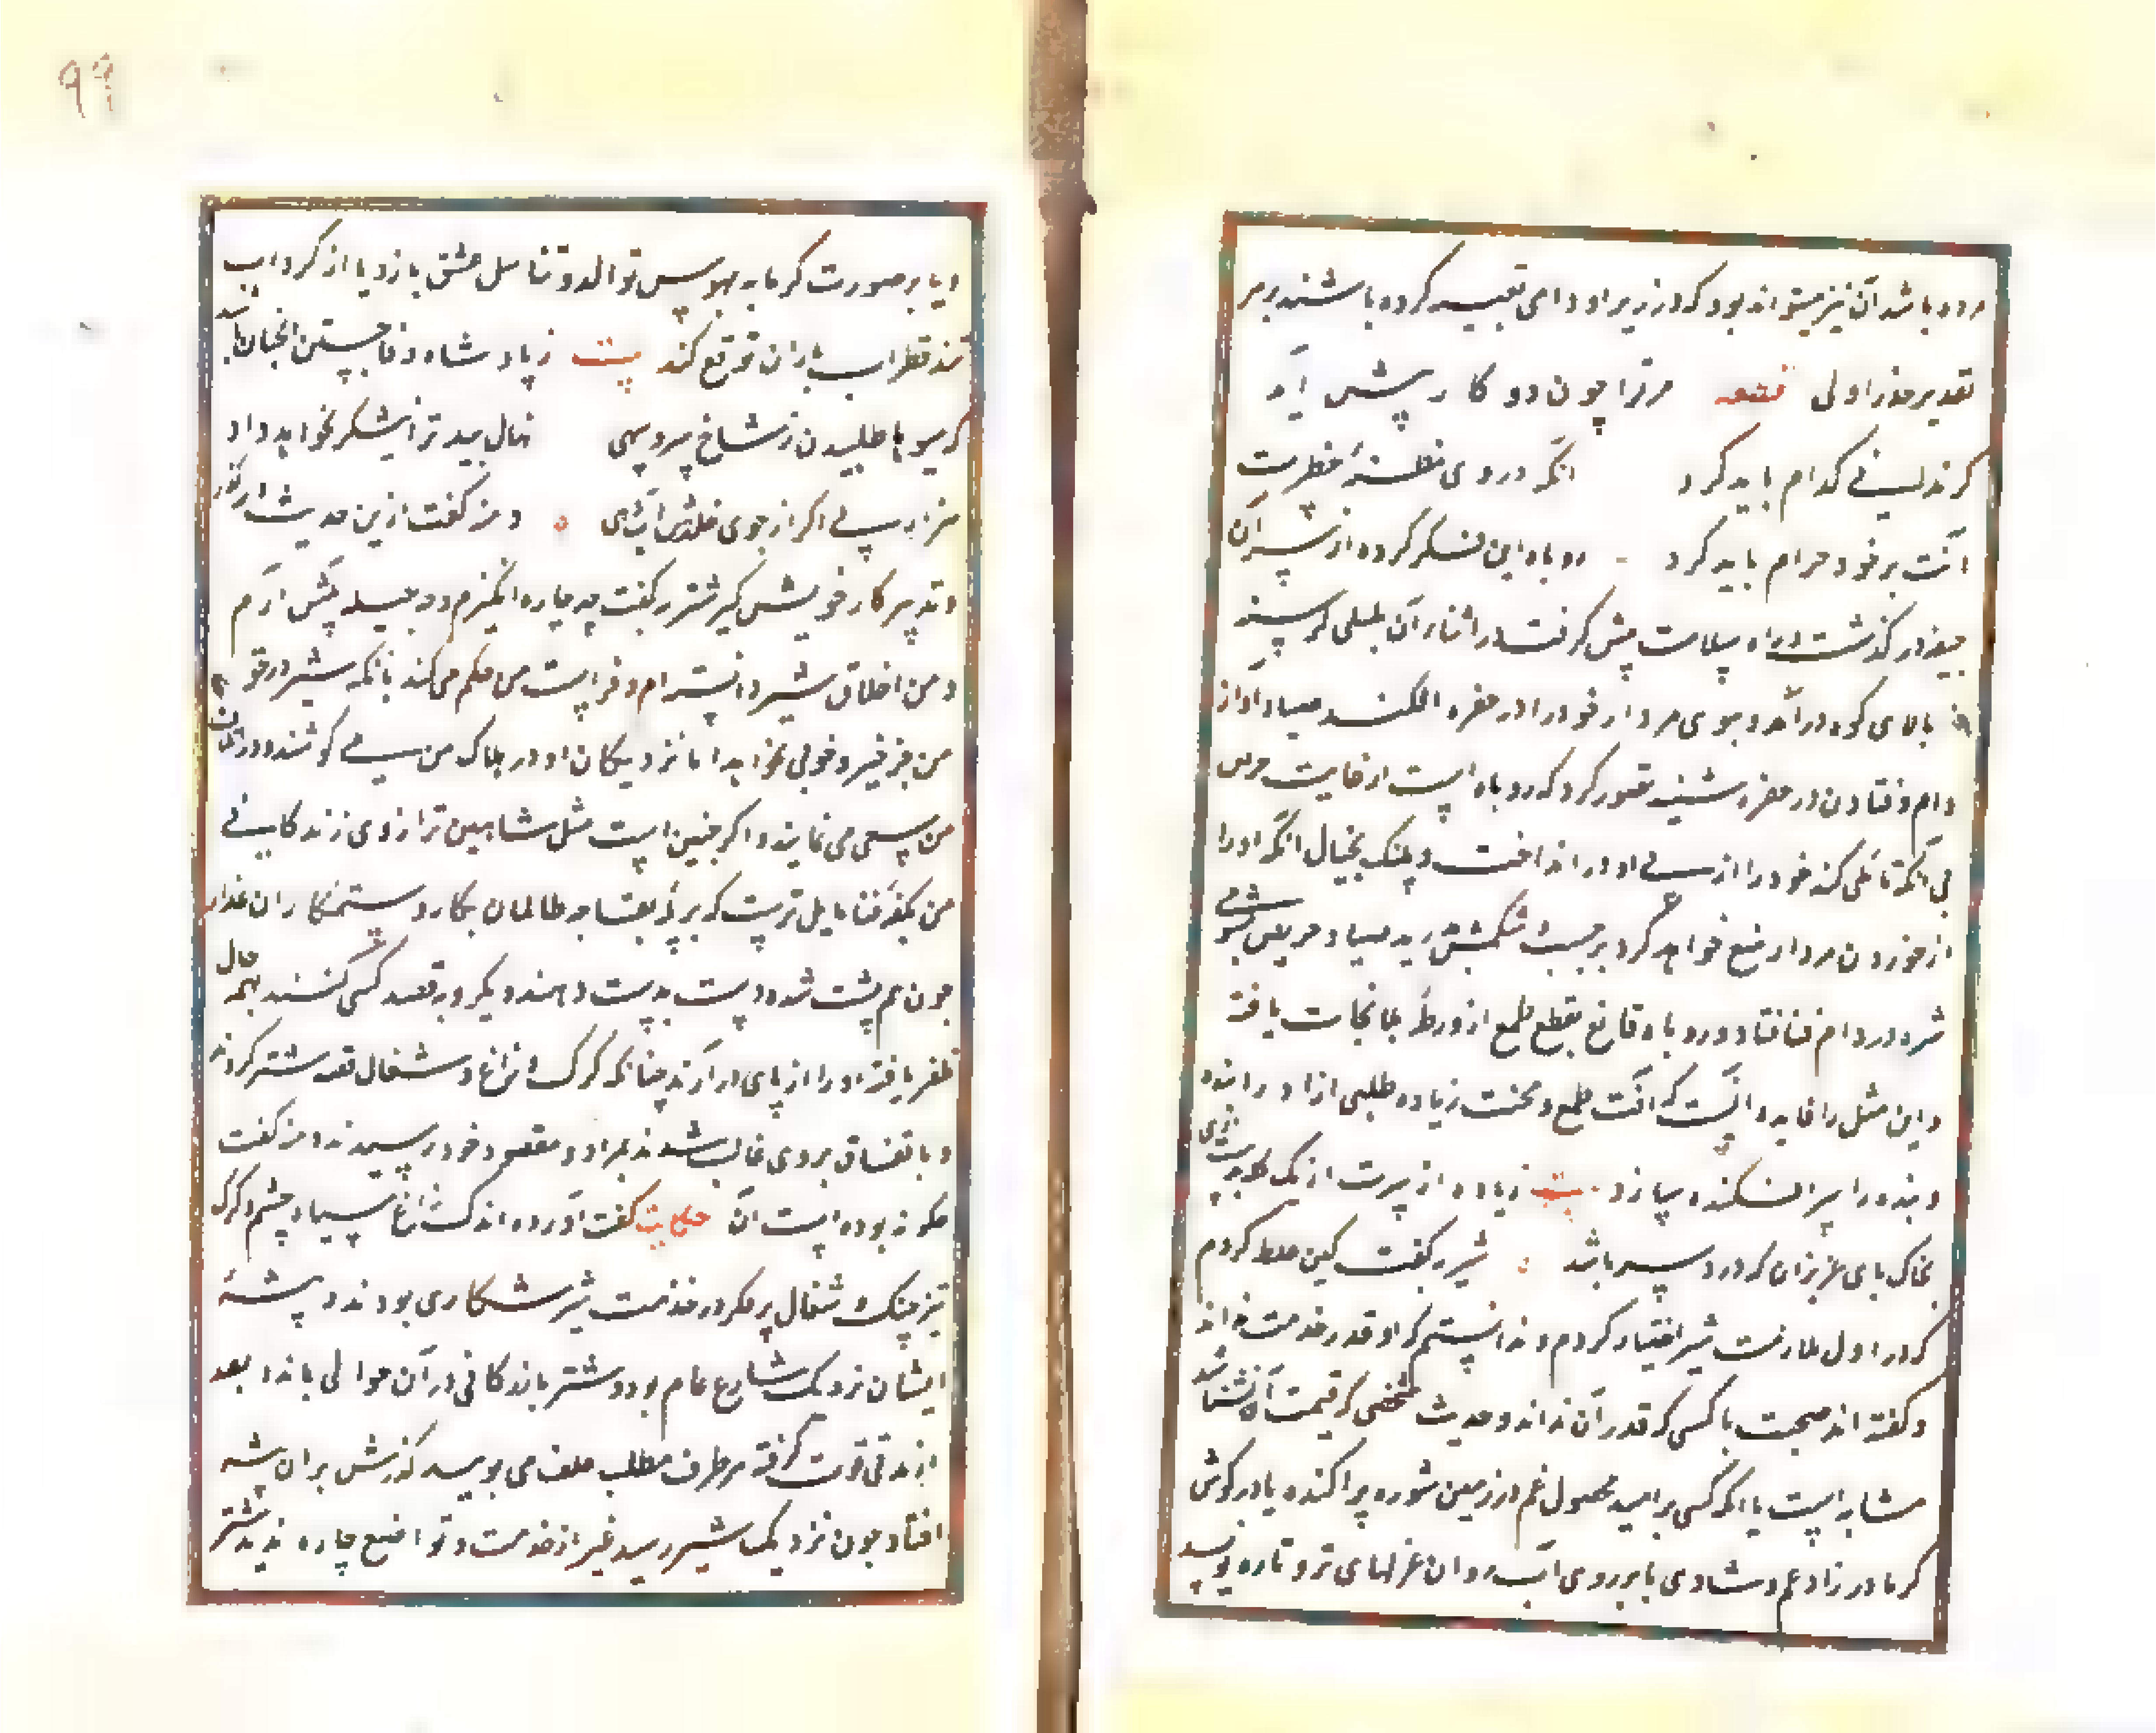 مرده باشد آن نیز میتواند بود که در زیر او دامی تعبیه کرده باشند بر هر
تقدیر حذر اولی قطعه مر ترا چون دو کار پیش آید
که ندانی کدام باید کرد آنکه در وی مظنهٔ خطرست
آنت بر خود حرام باید کرد روباه این فکر کرده از سر آن
جیفه در گذشت و راه سلامت پیش گرفت در اثناء آن پلنگی گرسنه
از بالای کوه در آمد و ببوی مردار خود را در حفره افکند صیاد آواز
دام و فتادن در حفره شنید تصور کرد که روباه است از غایت حرص
بی آنکه تأملی کند خود را از پی او در انداخت و پلنگ بخیال آنکه او را
از خوردن مردار منع خواهد کرد بر جست و شکمش درید صیاد حریص بشومی
شره در دام فنا فتاد و روباه قانع بقطع طمع از ورطهٔ بلا نجات یافت
و این مثل را فایده آنست که آفت طمع و محنت زیاده طلبی آزاد را بنده
و بنده را سر افکنده سازد بیت زیاده از سرت ار یک کله بدست آری
بخاک پای عزیزان که درد سر باشد شنزبه گفت کین غلط کردم
که در اول ملازمت شیر اختیار کردم و ندانستم که او قدر خدمت نداند
و گفته اند صحبت با کسی که قدر آن نداند و خدمت شخصی که قیمت آن نشناسد
مشابه است با آنکه کسی بر امید محصول تخم در زمین شوره پراکنده یا در گوش
کر مادرزاد غم و شادی یا بر روی آب روان غزلهای تر و تازه نویسد
و یا بر صورت گرمابه بهوس توالد و تناسل عشق بازد یا از گرداب
تند قطرات باران توقع کند بیت ز پادشاه وفا جستن آنچنان باشد
که میوه با طلبیدن ز شاخ سرو سهی نهال بید ترا نیشکر نخواهد داد
هزار بار اگر از جوی خلدش آب دهی دمنه گفت ازین حدیث در گذر
و تدبیر کار خویش گیر شنزبه گفت چه چاره انگیزم و چه حیله پیش آرم
و من اخلاق شیر دانسته‌ام و فراست من حکم می‌کند بانکه شیر در حق
من جز خیر و خوبی نخواهد اما نزدیکان او در هلاک من می کوشند و در
من سعی می نمایند و اگر چنین است مثل شاهین ترازوی زندگانی
من بکفهٔ فنا مایل ترست که بر بقا چه ظالمان مکار و ستمکاران غدار
چون هم پشت شوند و دست بدست دهند و یکرویه قصد کسی کنند بهمه حال
ظفر یافته او را از پای در آرند چنانکه گرگ و زاغ و شغال قصد شتر کردند
و باتفاق بر وی غالب شدند و بمراد و مقصود خود رسیدند دمنه گفت
چگونه بوده است آن حکایت گفت آورده اند که زاغ سیاه چشم و گرگ
تیز چنگ و شغال پر مکر در خدمت شیر شکاری بودند و بیشهٔ
ایشان نزدیک شارع عام بود و شتر بازرگانی در آن حوالی بماند و بعد
از مدتی قوت گرفته هر طرف بطلب علف می پویید گذرش بر آن بیشه
افتاد چون نزدیک شیر رسید غیر از خدمت و تواضع چاره ندید شتر
۹۹